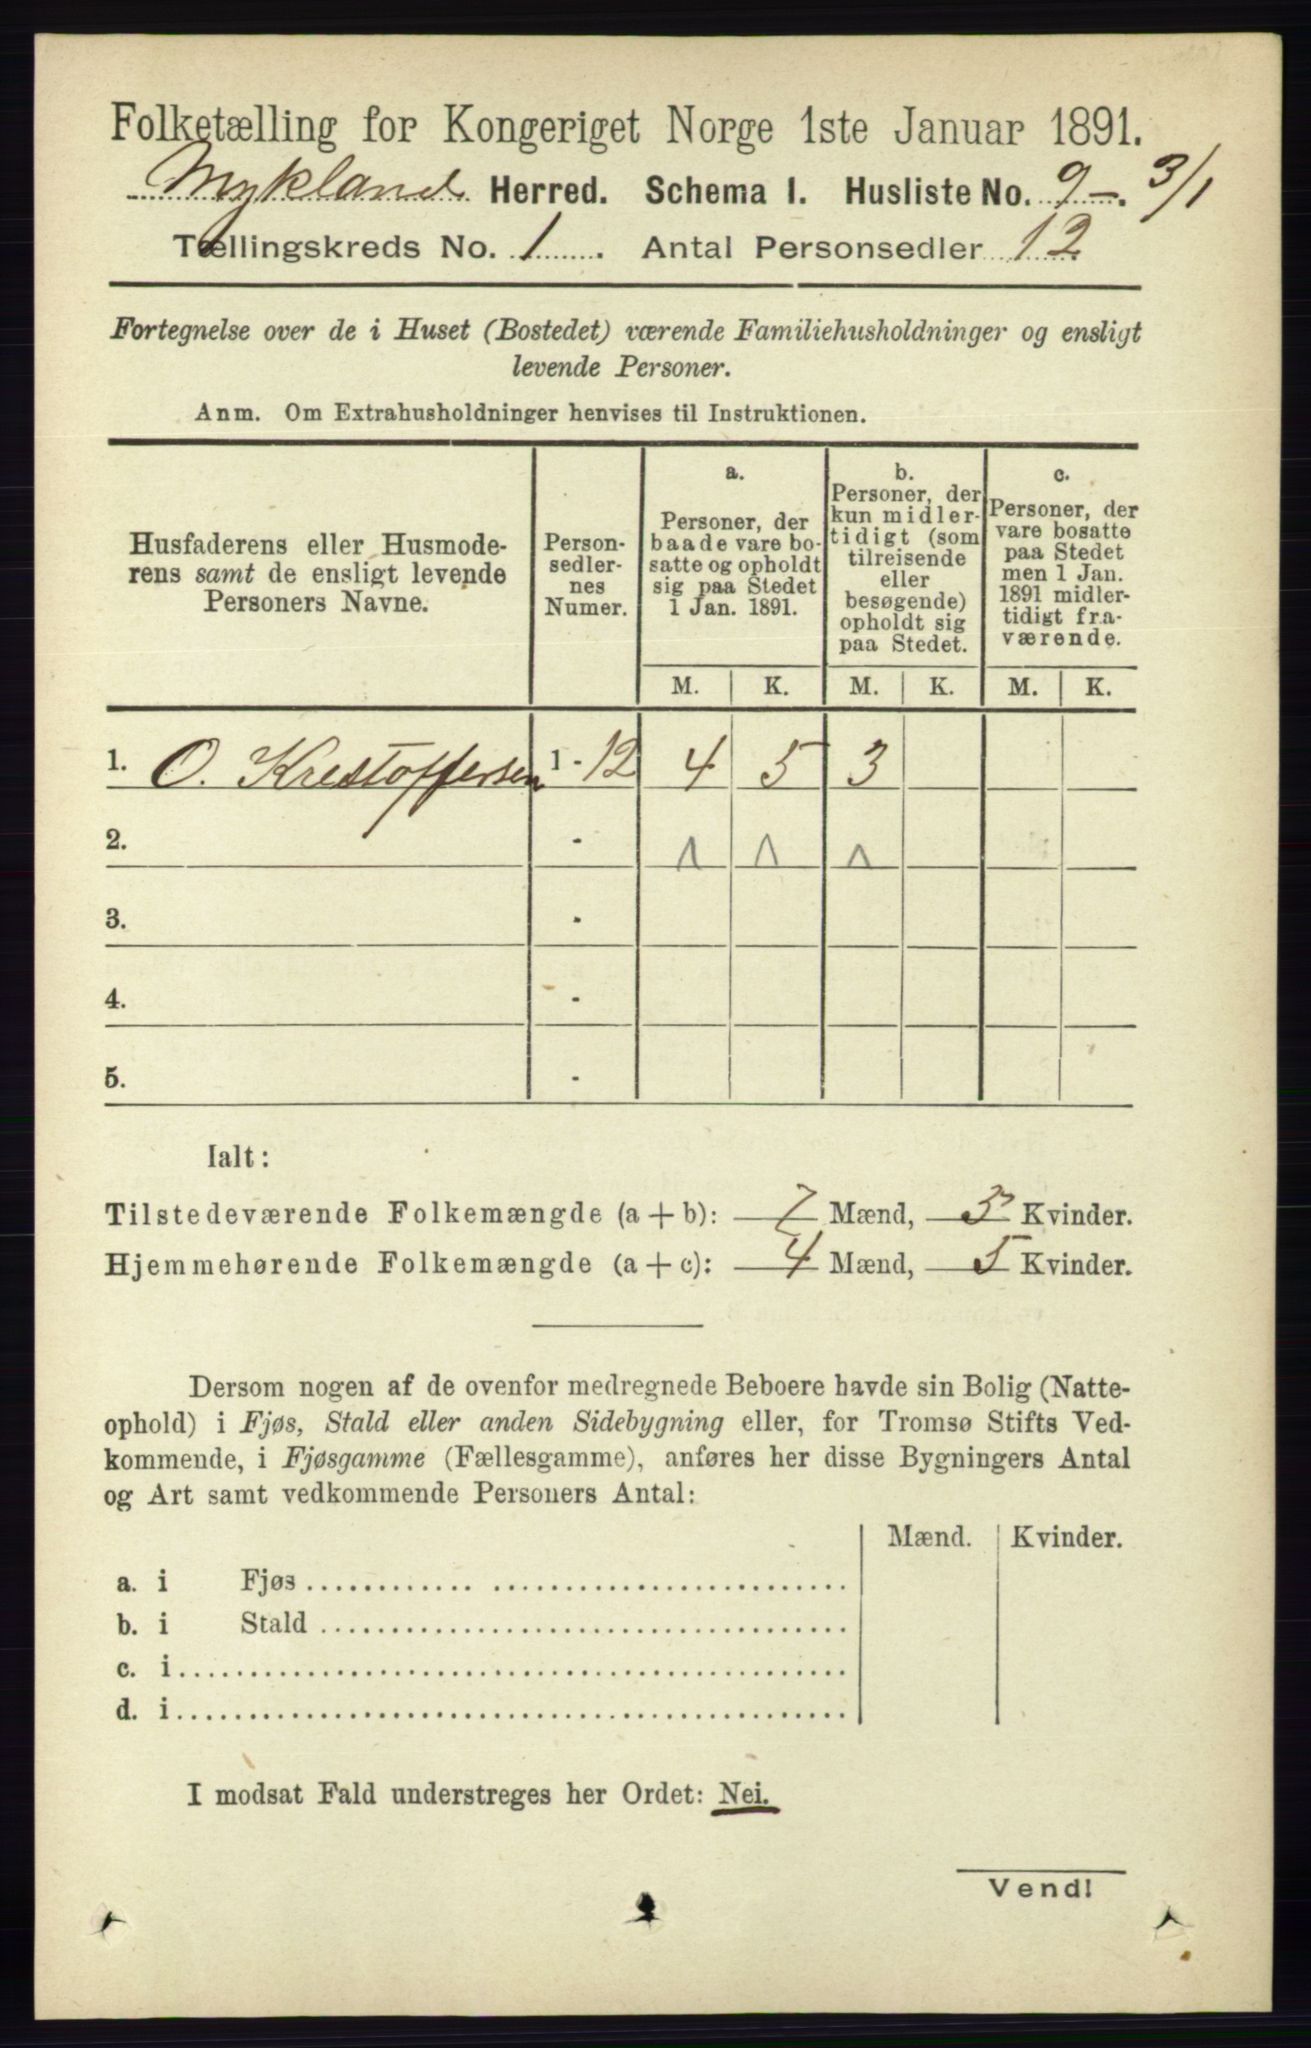 Folketælling for Kongeriget Norge 1ste Januar 1891.
Mykland Herred. Schema I. Husliste No. 9 -. 3/1
Tællingskreds No. 1 . Antal Personsedler 12.
Fortegnelse over de i Huset (Bostedet) værende Familiehusholdninger og ensligt
levende Personer.
Anm. Om Extrahusholdninger henvises til Instruktionen.
Husfaderens eller Husmode-
rens samt de ensligt levende
Personers Navne.
Person-
sedler-
nes
Numer.
a.
Personer, der
baade vare bo-
satte og opholdt
sig paa Stedet
1 Jan. 1891.
b.
Personer, der
kun midler-
tidigt (som
tilreisende
eller
besøgende)
opholdt sig
paa Stedet.
c.
Personer, der
vare bosatte
paa Stedet
men 1 Jan.
1891 midler-
tidigt fra-
værende.
M. K. M. K. M. K.
1. O. Krestoffersen 1 - 12 4 5 3
2. -
3. -
4. -
5. -
Ialt:
Tilstedeværende Folkemængde (a + b): 7 Mænd, 5 Kvinder.
Hjemmehørende Folkemængde (a + c): 4 Mænd, 5 Kvinder.
Dersom nogen af de ovenfor medregnede Beboere havde sin Bolig (Natte-
ophold) i Fjøs, Stald eller anden Sidebygning eller, for Tromsø Stifts Ved-
kommende, i Fjøsgamme (Fællesgamme), anføres her disse Bygningers Antal
og Art samt vedkommende Personers Antal:
Mænd. Kvinder.
a. i Fjøs
b. i Stald
c. i
d. i
I modsat Fald understreges her Ordet: Nei.
Vend!